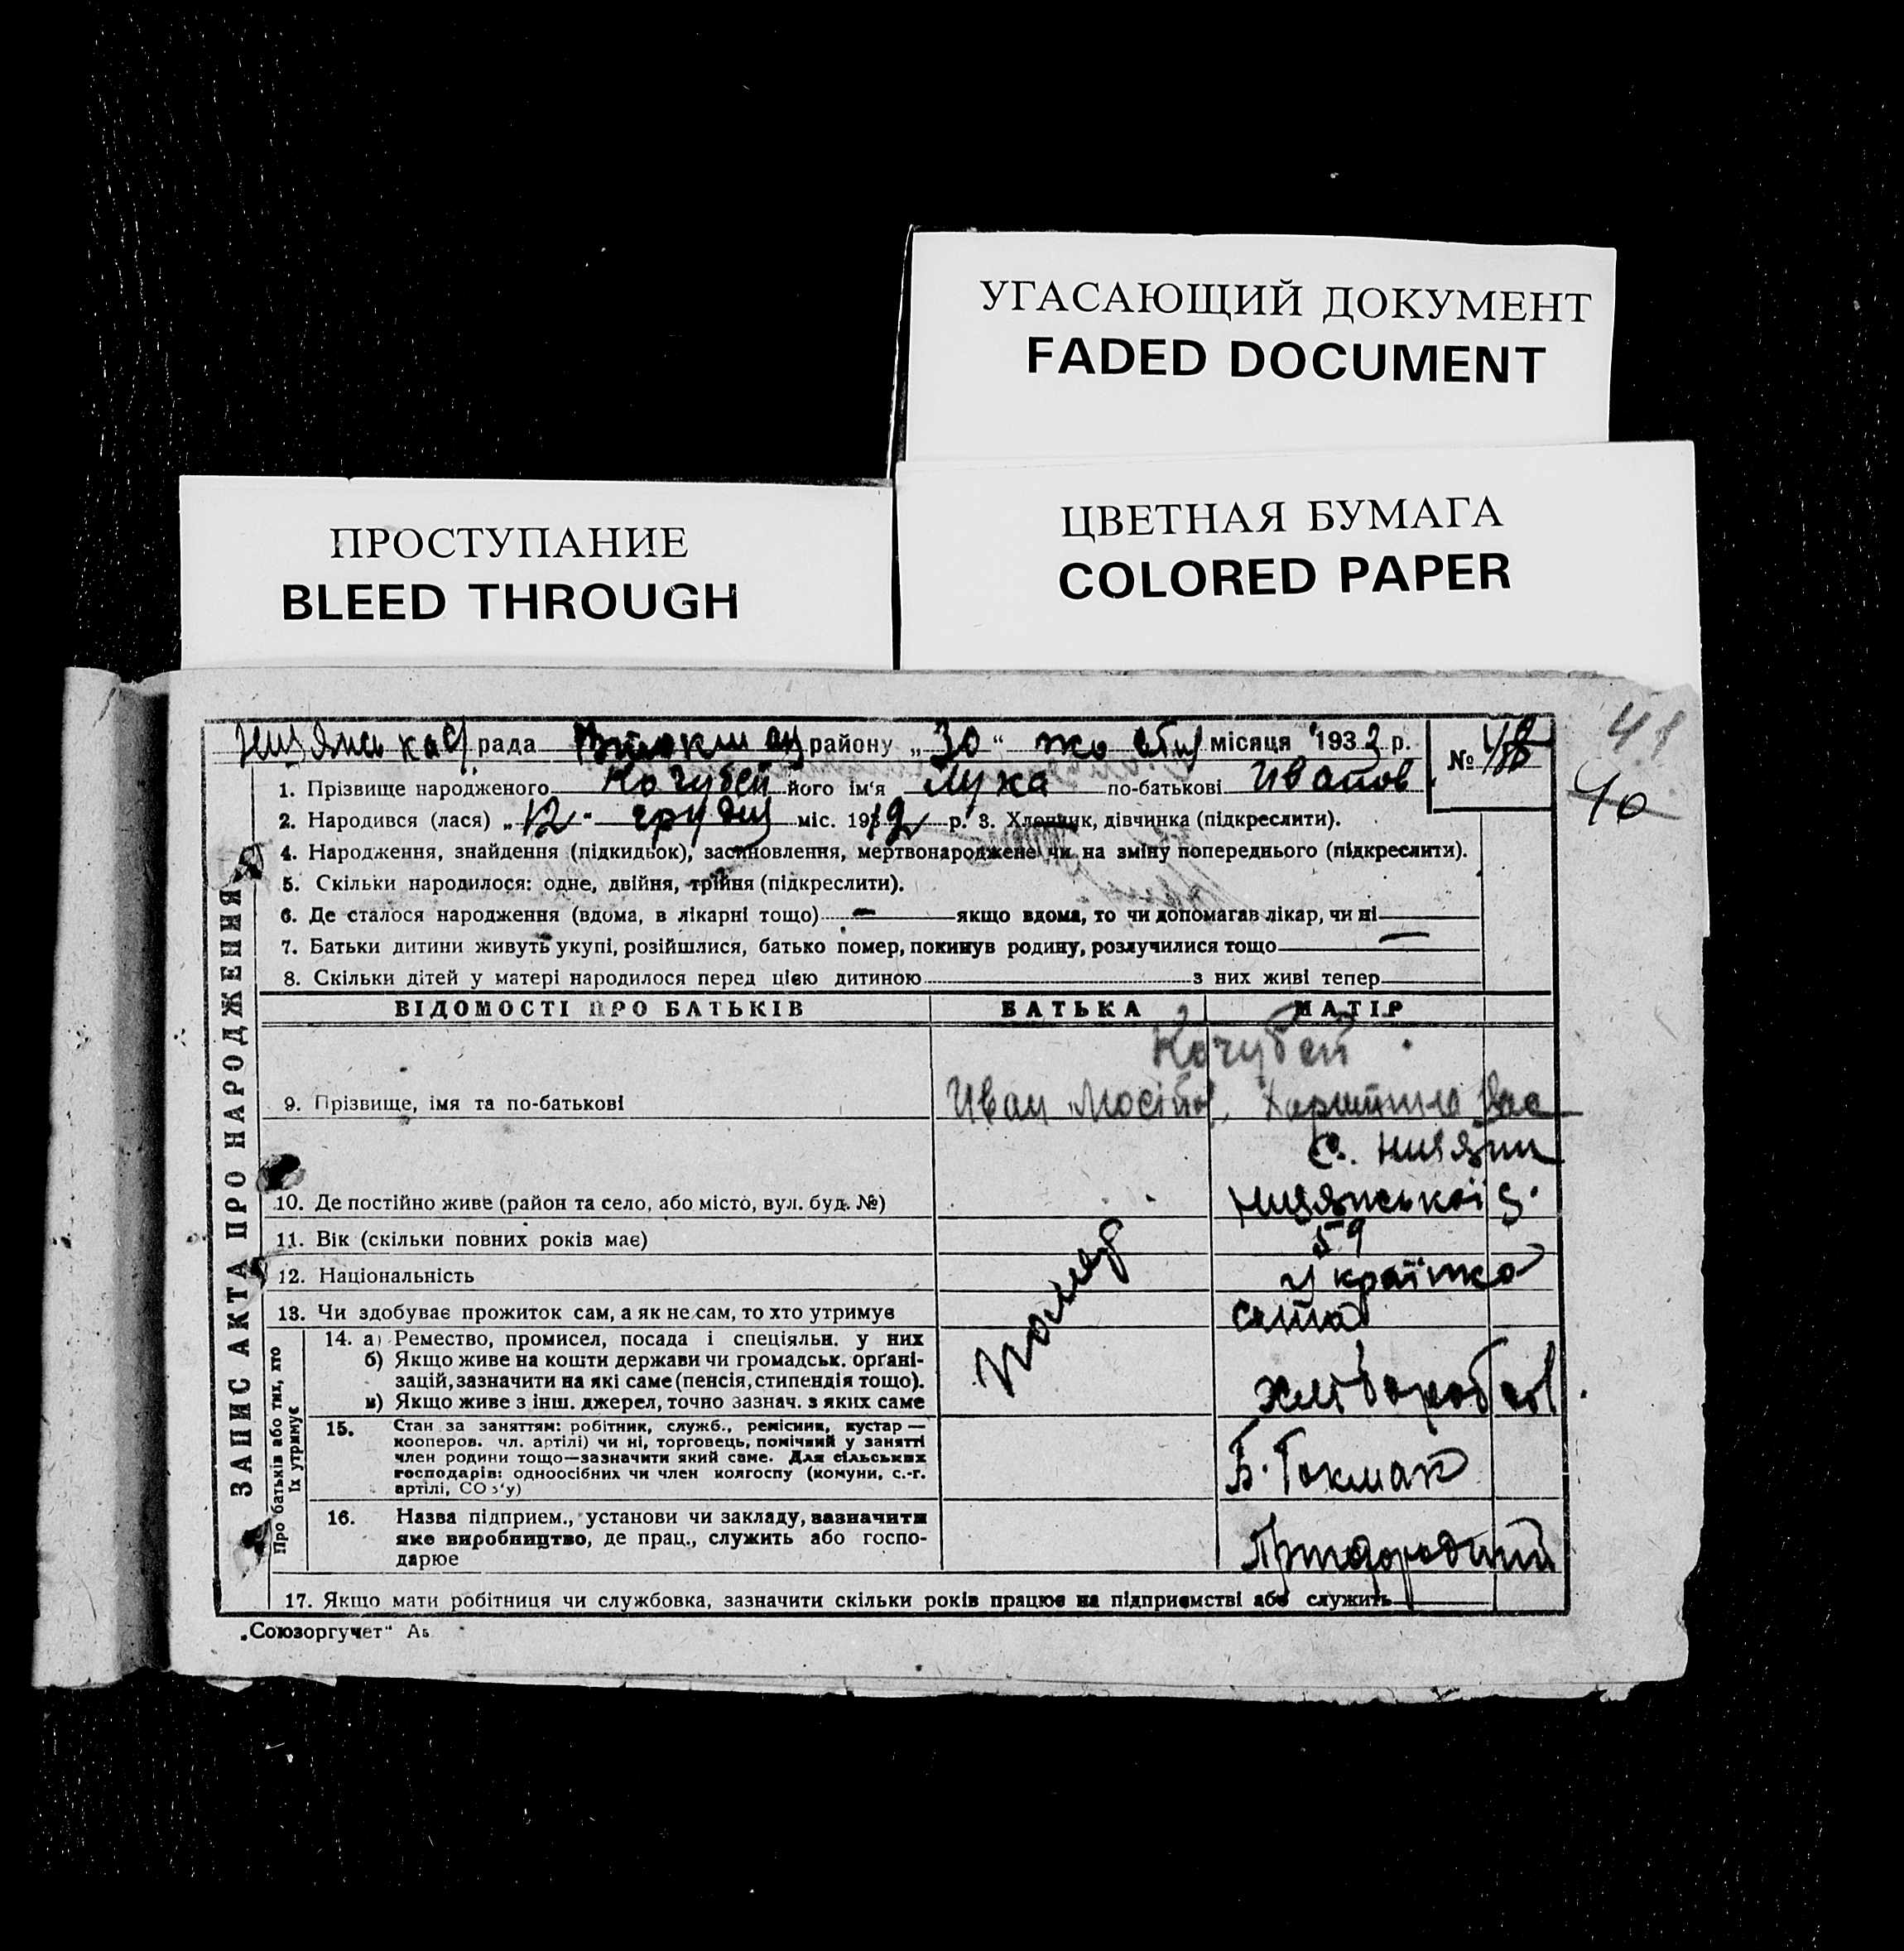 УГАСАЮЩИЙ ДОКУМЕНТ
FADED DOCUMENT
ПРОСТУПАНИЕ
BLEED THROUGH
ЦВЕТНАЯ БУМАГА
COLORED PAPER
41
40
рада району „30“ жовтня місяця 1933 р. №
1. Прізвище народженого Кочубей його ім'я Лука по-батькові Иванов
2. Народився (лася) „12“ грудня міс. 1912 р. 3. Хлопчик, дівчинка (підкреслити).
4. Народження, знайдення (підкидьок), засиновлення, мертвонароджене чи на зміну попереднього (підкреслити).
5. Скільки народилося: одне, двійня, трійня (підкреслити).
6. Де сталося народження (вдома, в лікарні тощо) — якщо вдома, то чи допомагав лікар, чи ні
7. Батьки дитини живуть укупі, розійшлися, батько помер, покинув родину, розлучилися тощо —
8. Скільки дітей у матері народилося перед цією дитиною з них живі тепер
ЗАПИС АКТА ПРО НАРОДЖЕННЯ
ВІДОМОСТІ ПРО БАТЬКІВ БАТЬКА МАТІР
Кочубей
9. Прізвище, імя та по-батькові Иван Вас
с.
10. Де постійно живе (район та село, або місто, вул. буд. №)
11. Вік (скільки повних років має) 59
12. Національність Українка
13. Чи здобуває прожиток сам, а як не сам, то хто утримує сама
помер
Про батьків або тих, хто їх утримує
14. а) Ремество, промисел, посада і спеціяльн. у них
б) Якщо живе на кошти держави чи громадськ. органі-
зацій, зазначити на які саме (пенсія, стипендія тощо).
в) Якщо живе з інш. джерел, точно зазнач. з яких саме хлібороб
15. Стан за заняттям: робітник, служб., ремісник, кустар —
кооперов. чл. артілі) чи ні, торговець, помічний у занятті
член родини тощо—зазначити який саме. Для сільських
господарів: одноосібних чи член колгоспу (комуни, с.-г.
артілі, СОз'у) Б. Токмак
16. Назва підприєм., установи чи закладу, зазначити
яке виробництво, де прац., служить або госпо-
дарюе
17. Якщо мати робітниця чи службовка, зазначити скільки років працює на підприємстві або служить
„Союзоргучет“